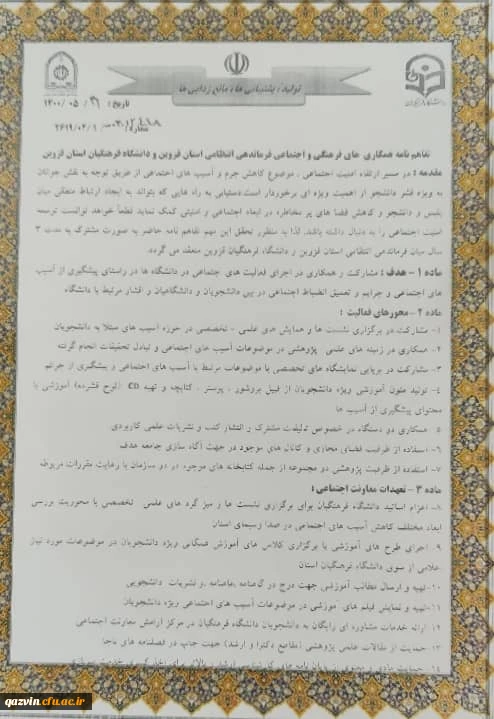 تولید؛ پشتیبانی ها، مانع زدایی ها
دانشگاه فرهنگیان
تاریخ : ۱۴۰۰/۰۵/
شماره:
تفاهم نامه همکاری های فرهنگی و اجتماعی فرماندهی انتظامی استان قزوین و دانشگاه فرهنگیان استان قزوین
مقدمه : در مسیر ارتقاء امنیت اجتماعی ، موضوع کاهش جرم و آسیب های اجتماعی از طریق توجه به نقش جوانان
به ویژه قشر دانشجو از اهمیت ویژه ای برخوردار است.دستیابی به راه هایی که بتواند به ایجاد ارتباط منطقی میان
پلیس و دانشجو و کاهش فضا های پر مخاطره در ابعاد اجتماعی و امنیتی کمک نماید قطعاً خواهد توانست توسعه
امنیت اجتماعی را به دنبال داشته باشد. لذا به منظور تحقق این مهم تفاهم نامه حاضر به صورت مشترک به مدت ۳
سال میان فرماندهی انتظامی استان قزوین و دانشگاه فرهنگیان قزوین منعقد می گردد.
ماده ۱ – هدف : مشارکت و همکاری در اجرای فعالیت های اجتماعی در دانشگاه ها در راستای پیشگیری از آسیب
های اجتماعی و جرایم و تعمیق انضباط اجتماعی در بین دانشجویان و دانشگاهیان و اقشار مرتبط با دانشگاه
ماده ۲ – محورهای فعالیت :
۱- مشارکت در برگزاری نشست ها و همایش های علمی - تخصصی در حوزه آسیب های مبتلا به دانشجویان
۲- همکاری در زمینه های علمی پژوهشی در موضوعات آسیب های اجتماعی و تبادل تحقیقات انجام گرفته
۳- مشارکت در برپایی نمایشگاه های تخصصی با موضوعات مرتبط با آسیب های اجتماعی و پیشگیری از جرائم
۴- تولید متون آموزشی ویژه دانشجویان از قبیل بروشور ، پوستر ، کتابچه و تهیه CD (لوح فشرده) آموزشی با
محتوای پیشگیری از آسیب ها
۵- همکاری دو دستگاه در خصوص تالیفات مشترک و انتشار کتب و نشریات علمی کاربردی
۶- استفاده از ظرفیت فضای مجازی و کانال های موجود در جهت آگاه سازی جامعه هدف
۷- استفاده از ظرفیت پژوهشی دو مجموعه از جمله کتابخانه های موجود در دو سازمان با رعایت مقررات مربوطه
ماده ۳ – تعهدات معاونت اجتماعی :
۸- اعزام اساتید دانشگاه فرهنگیان برای برگزاری نشست ها و میز گرد های علمی تخصصی با محوریت بررسی
ابعاد مختلف کاهش آسیب های اجتماعی در صدا و سیمای استان
۹- اجرای طرح های آموزشی با برگزاری کلاس های آموزش همگانی ویژه دانشجویان در موضوعات مورد نیاز
اعلامی از سوی دانشگاه فرهنگیان استان
۱۰-تهیه و ارسال مطالب آموزشی جهت درج در گاهنامه ،ماهنامه و نشریات دانشجویی
۱۱-تهیه و نمایش فیلم های آموزشی در موضوعات آسیب های اجتماعی ویژه دانشجویان
۱۲- ارائه خدمات مشاوره ای رایگان به دانشجویان دانشگاه فرهنگیان در مرکز آرامش معاونت اجتماعی
۱۳-حمایت از مقالات علمی پژوهشی (مقاطع دکترا و ارشد) جهت چاپ در فصلنامه های ناجا
qazvin.cfu.ac.ir